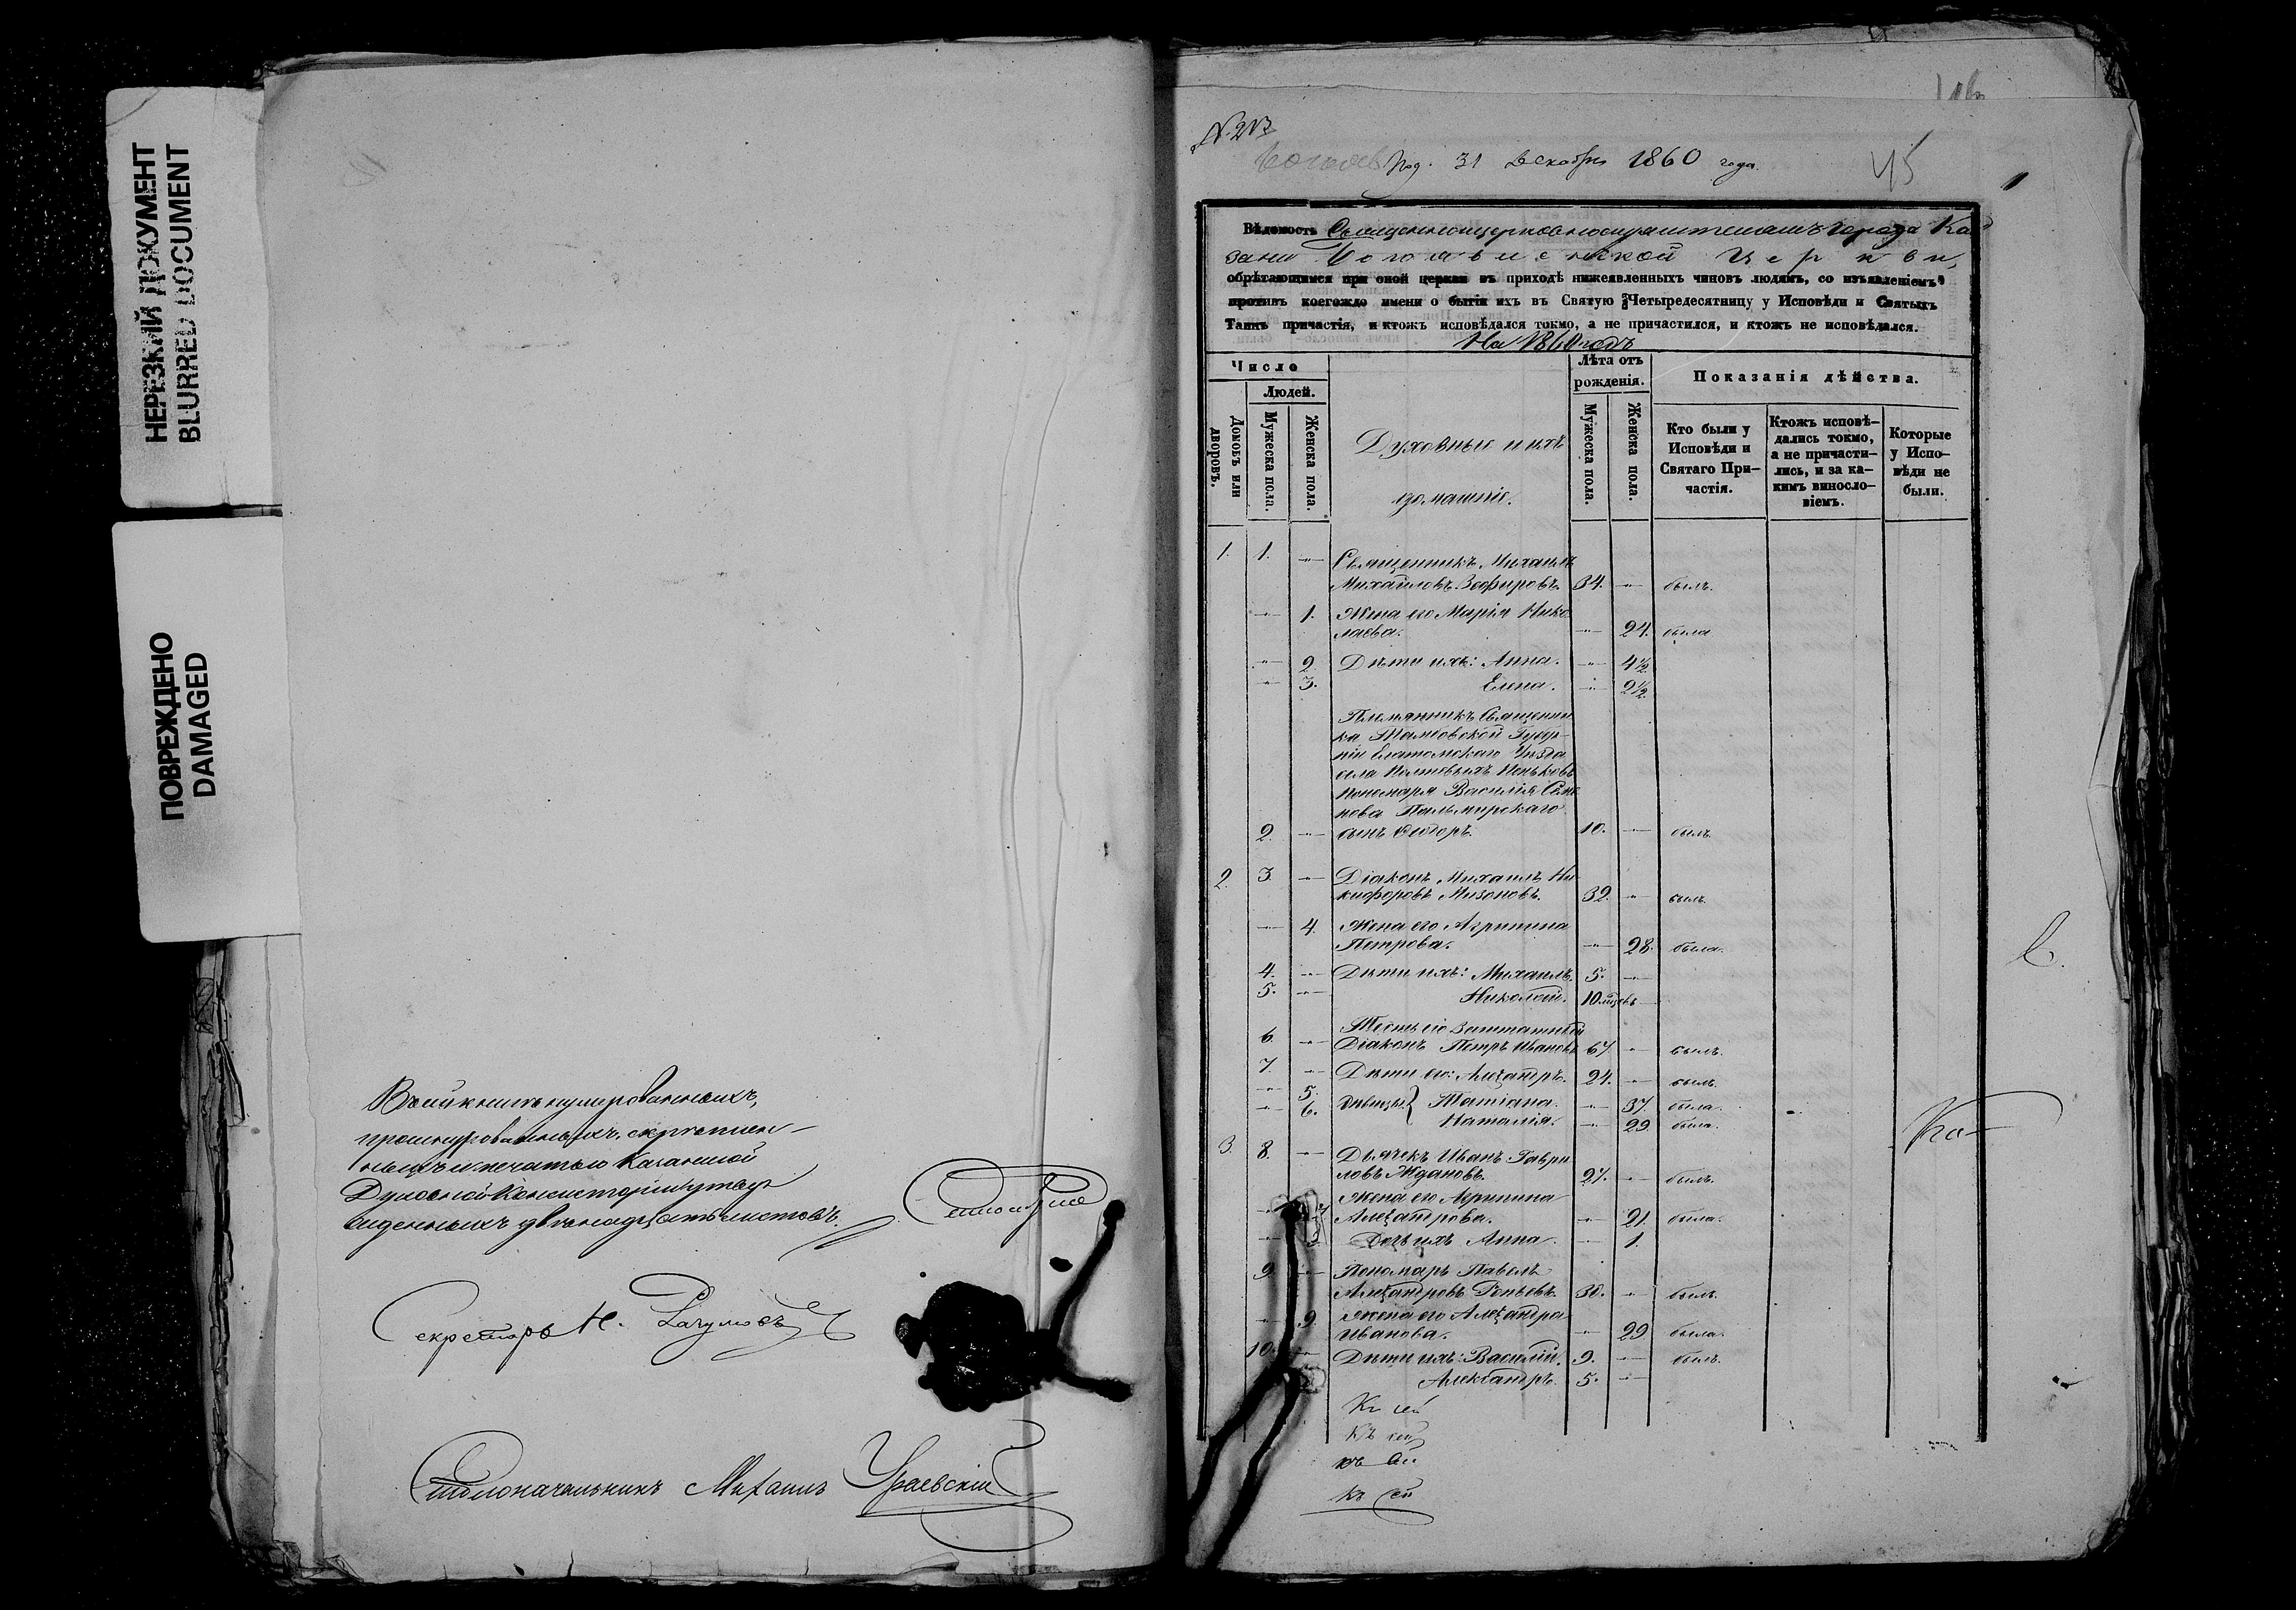 НЕРЕЗКИЙ ДОКУМЕНТ
BLURRED DOCUMENT
ПОВРЕЖДЕНО
DAMAGED
Въ сей книгѣ нумерованныхъ,
прошнурованныхъ, скрѣплен-
ныхъ и печатью Казанской
Духовной Консисторіи утвер
жденныхъ двѣнадцать листовъ.
Секретарь Н.
Столоначальникъ Михаилъ
№ 213
Под. 31 Декабря 1860 года.
45
Вѣдомость Священноцерковнослужителямъ города Ка
зани Богоявленской Церкви,
обрѣтающимся при оной церкви въ приходѣ нижеявленныхъ чиновъ людямъ, со изъявленіемъ
противъ коегождо имени о бытіи ихъ въ Святую Четыредесятницу у Исповѣди и Святыхъ
Таинъ причастія, и ктожъ исповѣдался токмо, а не причастился, и ктожъ не исповѣдался.
На 1860 годъ
Число
Людей.
Домовъ или дворовъ.
Мужеска пола.
Женска пола.
Духовные и ихъ
домашніе.
Лѣта отъ рожденія.
Мужеска пола.
Женска пола.
Показанія дѣйства.
Кто были у Исповѣди и Святаго При-частія.
Ктожъ исповѣ-дались токмо, а не причасти-лись, и за ка-кимъ винос­ло-віемъ.
Которые у Испо-вѣди не были.
1. 1. — Священникъ Михаилъ
Михайловъ Зефировъ. 34. — былъ.
— 1. Жена его Марія Нико
лаева. — 24. была
— 2. Дѣти ихъ: Анна. — 4½
— 3. Елена. — 2½
Племянникъ Священни
ка Тамбовской Губер-
ніи Елатомскаго Уѣзда
села
Пономаря Василія Семе
нова Пальмирскаго
2. — сынъ 10. — былъ
2. 3. — Діаконъ Михаилъ Ни
кифоровъ Мизоновъ. 32. — былъ.
— 4. Жена его Агрипина
Петрова. — 28. была.
4. — Дѣти ихъ: Михаилъ. 5. —
5. — Николай. 10 мѣсяц. —
Тесть его Заштатный
6. — Діаконъ Петръ Ивановъ 67 — былъ.
7. — Дѣти его: Алеѯандръ. 24. — былъ.
— 5. Дѣвицы} Татіана. — 37. была.
— 6. Наталія. — 29. была.
3. 8. — Дьячекъ Иванъ Гаври
ловъ Ждановъ. 27. — былъ.
Жена его Агрипина
— Алеѯандрова. — 21. была.
— Дочь ихъ Анна. — 1.
9. — Пономарь Павелъ
Алеѯандровъ 30. — былъ.
— 9. Жена его Алеѯандра
Иванова. — 29 была.
10. — Дѣти ихъ: Василій. 9. — былъ.
Александръ. 5. —
Къ сей
Къ сей
къ сей
Къ сей